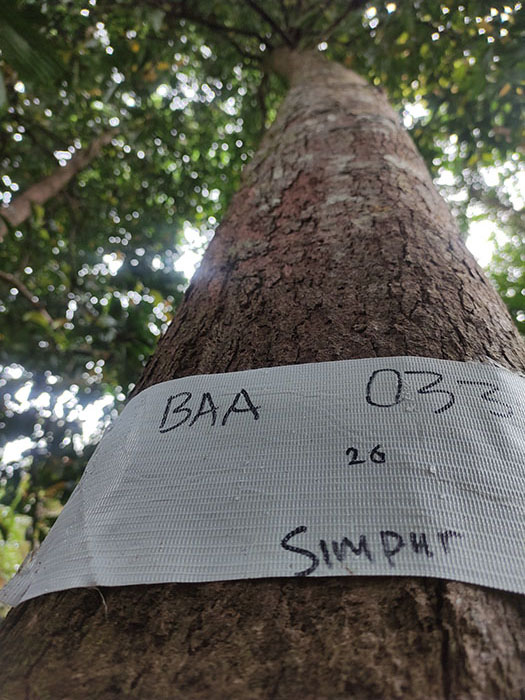 BAA 033
26
Simpur